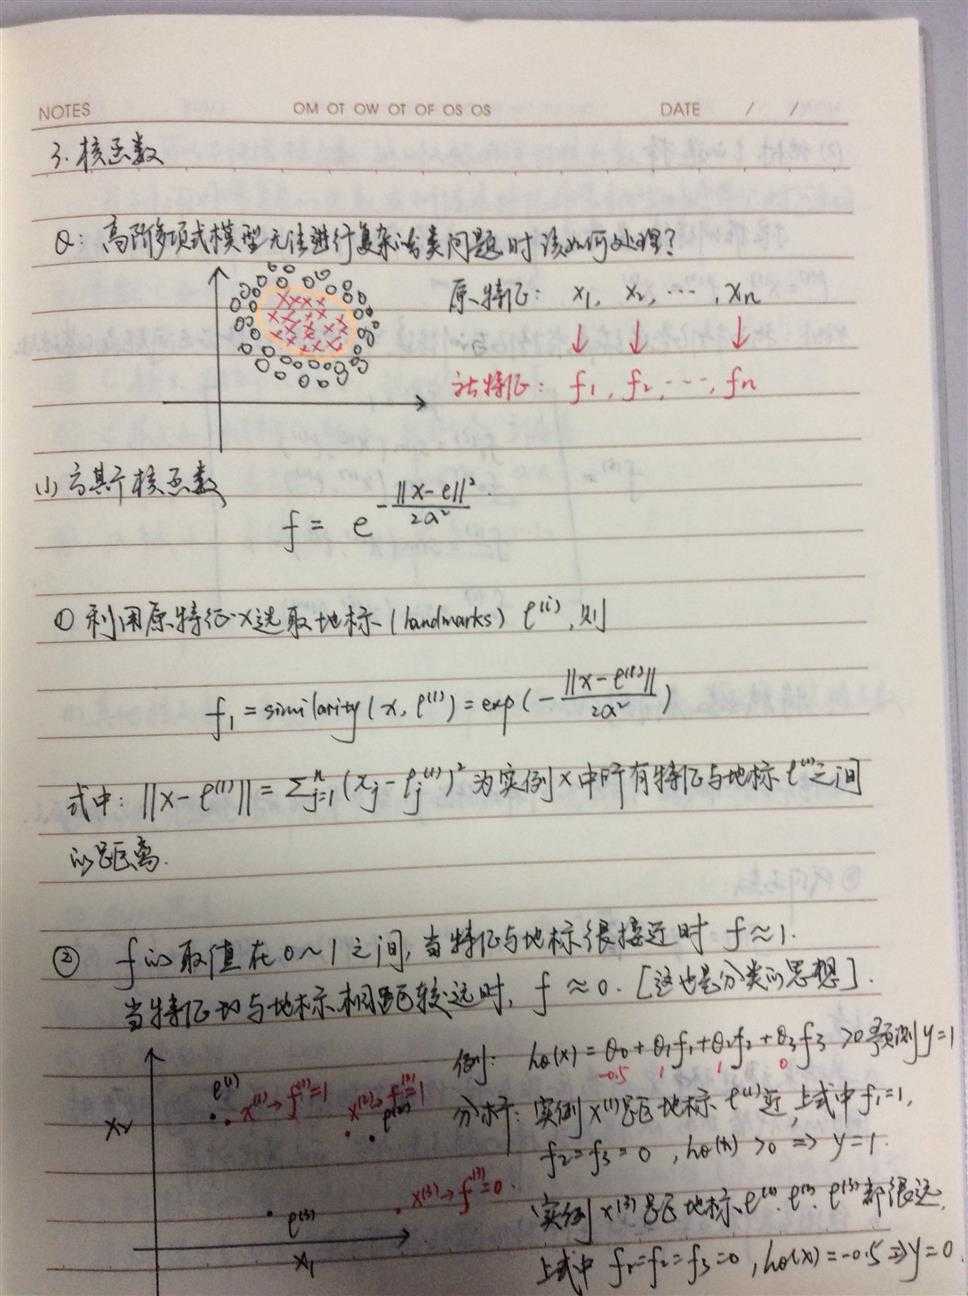 NOTES OM OT OW OT OF OS OS DATE / /
3. 核函数
Q: 高阶多项式模型无法进行复杂分类问题时该如何处理?
原特征: x₁, x₂, ⋯, xₙ
↓ ↓ ↓
新特征: f₁, f₂, ⋯, fₙ
(1) 高斯核函数
f = e^{-\frac{||x-l||²}{2σ²}}
① 利用原特征x选取地标(landmarks) l⁽ⁱ⁾, 则
f₁ = similarity(x, l⁽¹⁾) = exp(-\frac{||x-l⁽¹⁾||}{2σ²})
式中: ||x-l⁽¹⁾|| = Σⁿⱼ₌₁(xⱼ-lⱼ⁽¹⁾)² 为实例x中所有特征与地标l⁽¹⁾之间
的距离.
② f的取值在0~1之间, 当特征与地标很接近时 f≈1.
当特征与地标相距较远时, f≈0. [这也是分类的思想].
例: hθ(x) = θ₀+θ₁f₁+θ₂f₂+θ₃f₃ >0 预测y=1
-0.5 1 1 0
分析: 实例x⁽¹⁾距地标l⁽¹⁾近, 上式中f₁=1,
f₂=f₃=0, hθ(x)>0 ⇒ y=1.
实例x⁽³⁾距地标l⁽¹⁾.l⁽²⁾.l⁽³⁾都很远,
上式中 f₁=f₂=f₃=0, hθ(x)=-0.5 ⇒ y=0
x₂
l⁽¹⁾
x⁽¹⁾→f⁽¹⁾=1
x⁽²⁾→f⁽²⁾=1
l⁽²⁾
x⁽³⁾→f⁽³⁾=0
l⁽³⁾
x₁